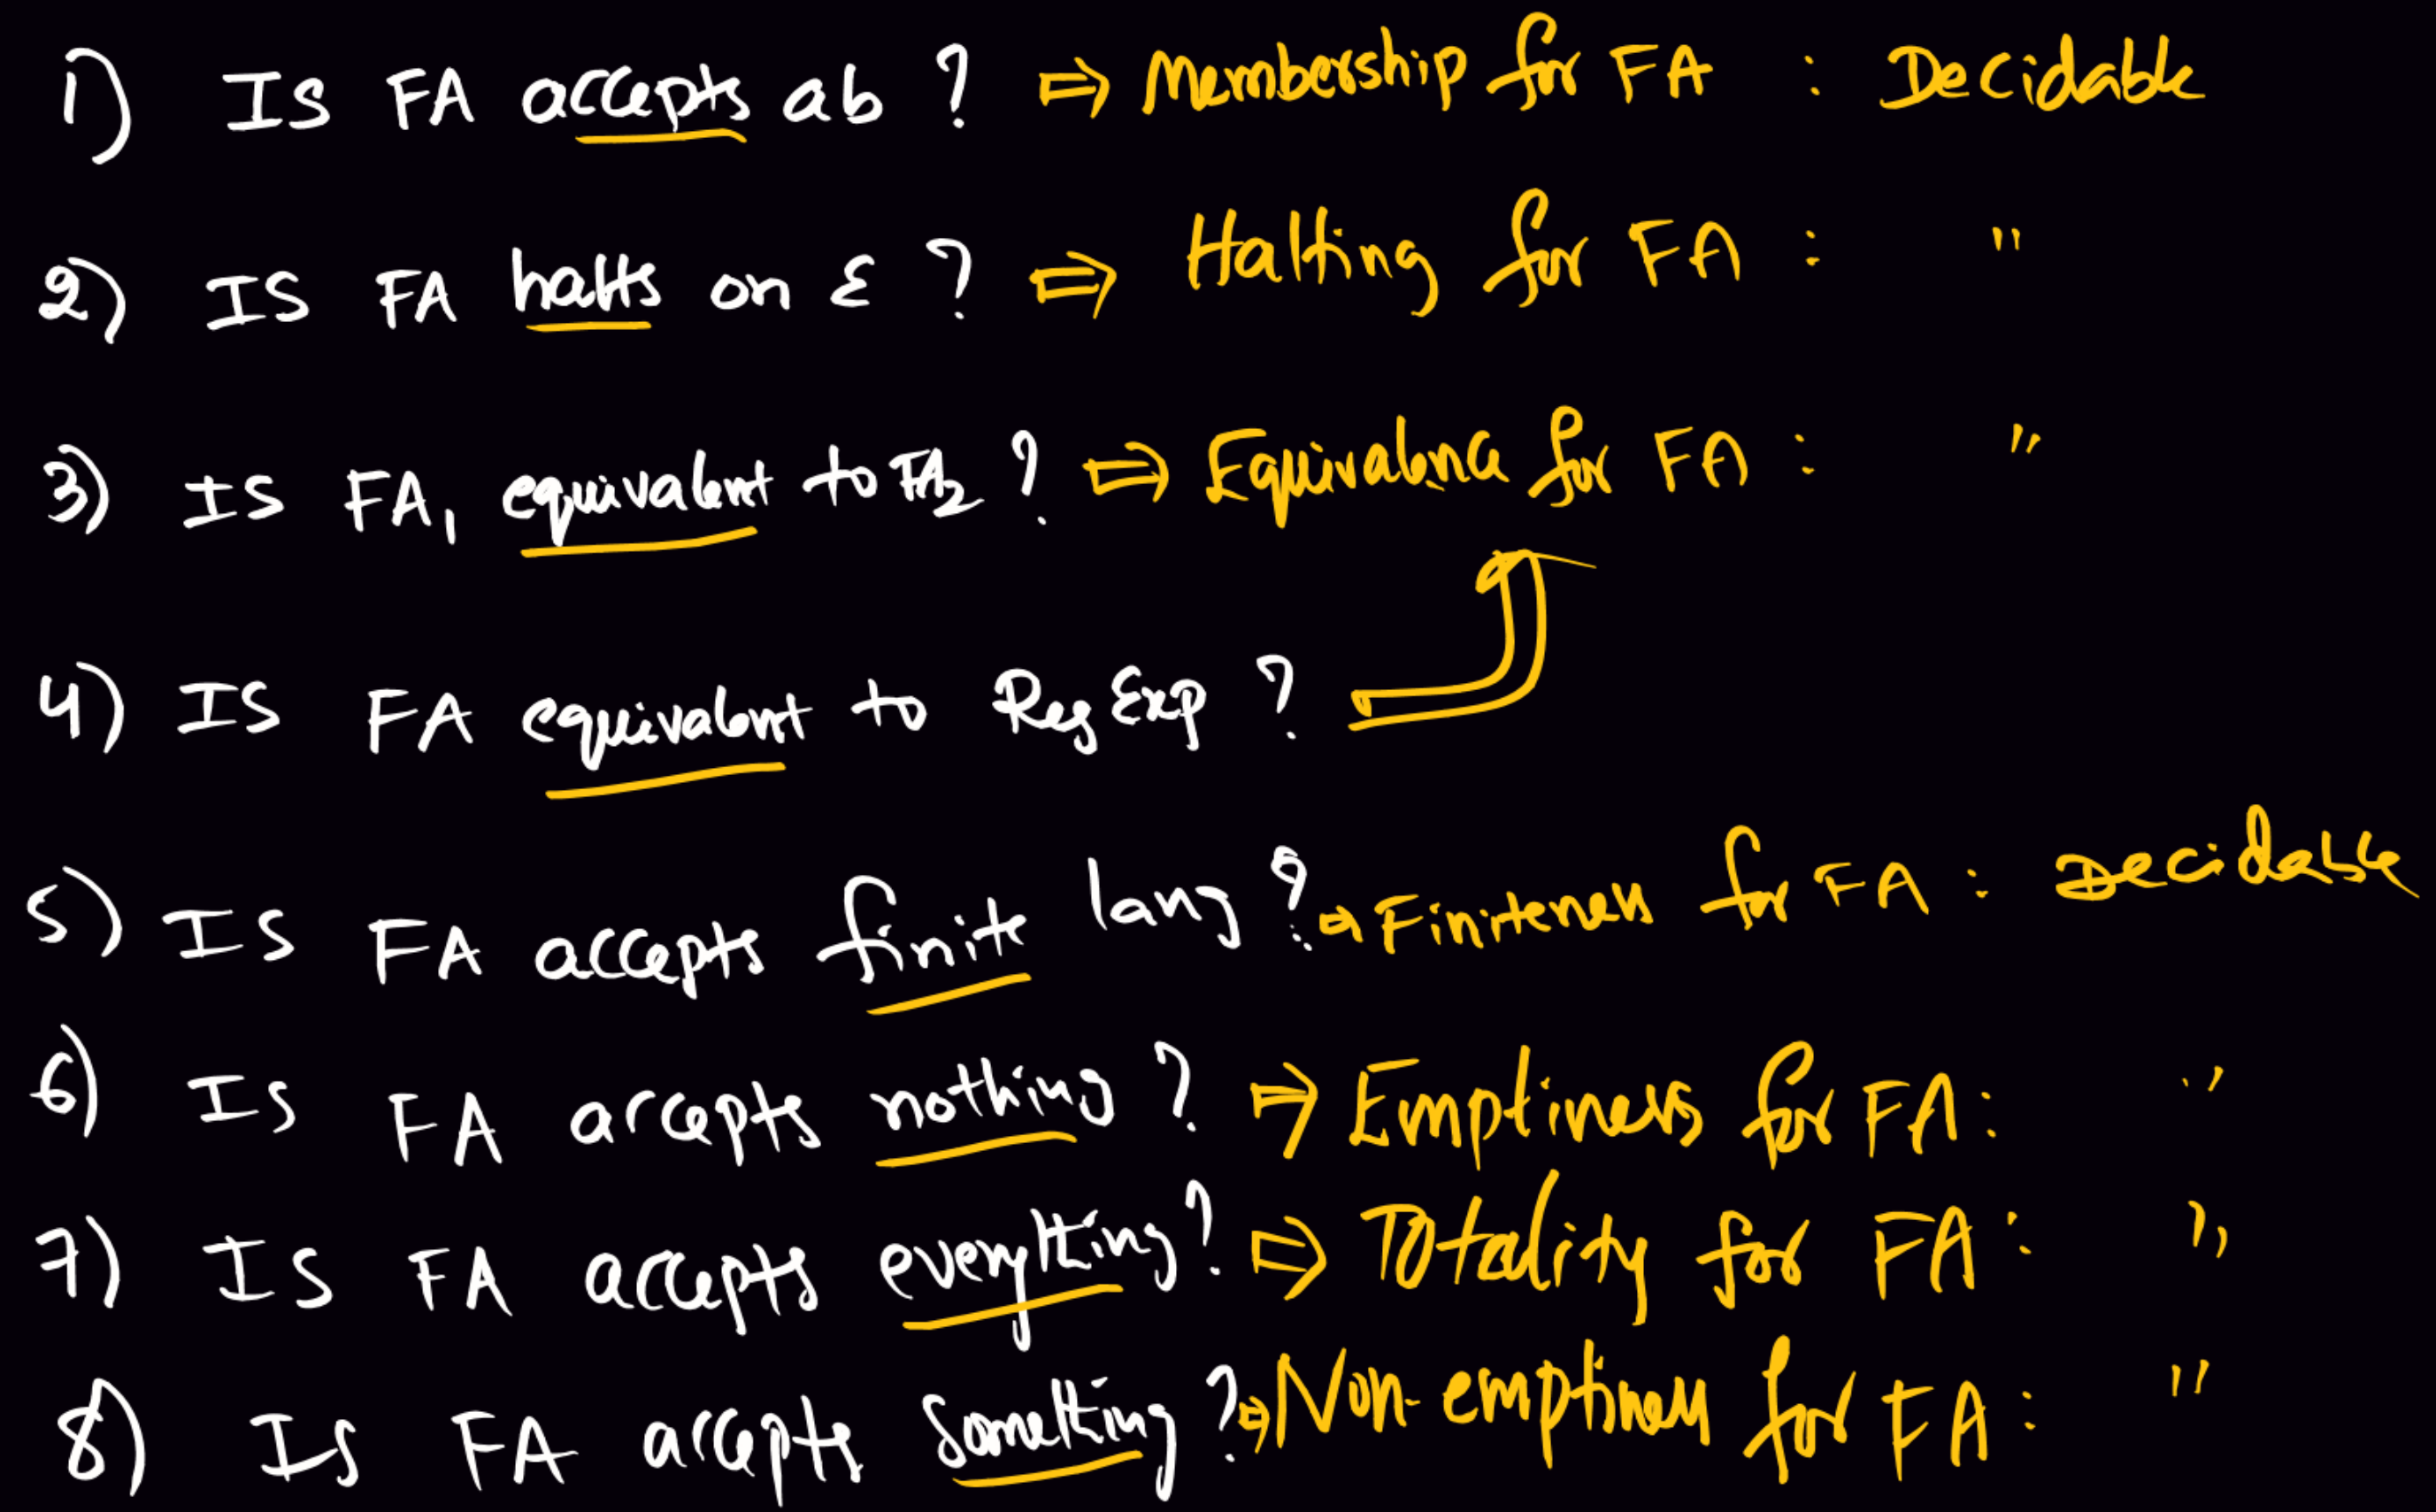 1) IS FA accepts ab ? ⇒ Membership for FA : Decidable
2) IS FA halts on ε ? ⇒ Halting for FA : "
3) IS FA1 equivalent to FA2 ? ⇒ Equivalence for FA : "
4) IS FA equivalent to Reg Exp ?
5) IS FA accepts finite lang ? ⇒ Finiteness for FA : Decidable
6) IS FA accepts nothing ? ⇒ Emptiness for FA : "
7) IS FA accepts everything ? ⇒ Totality for FA : "
8) Is FA accepts Something ? ⇒ Non-emptiness for FA : "